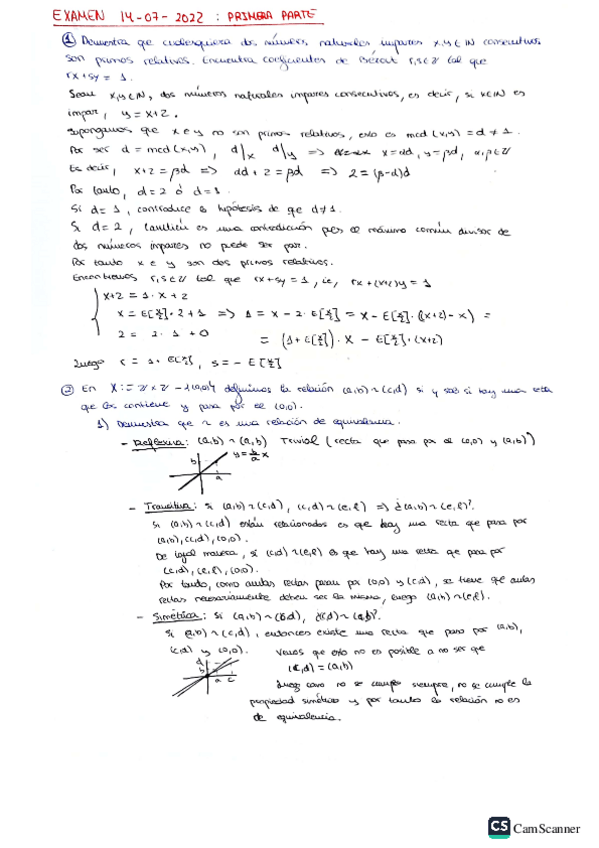 EXAMEN 14-07-2022 : PRIMERA PARTE
① Demuestra que cualesquiera dos números naturales impares x,y ∈ ℕ consecutivos
son primos relativos. Encuentra coeficientes de Bézout r,s ∈ ℤ tal que
rx + sy = 1.
Sean x,y ∈ ℕ, dos números naturales impares consecutivos, es decir, si x ∈ ℕ es
impar, y = x+2.
Supongamos que x e y no son primos relativos, esto es mcd(x,y) = d ≠ 1.
Por ser d = mcd(x,y), d/x d/y => x = αd, y = βd, α,β ∈ ℤ
Es decir, x+2 = βd => αd + 2 = βd => 2 = (β-α)d
Por tanto, d=2 ó d=1.
Si d=1, contradice la hipótesis de que d≠1.
Si d=2, también es una contradicción pues el máximo común divisor de
dos números impares no puede ser par.
Por tanto x e y son dos primos relativos.
Encontremos r,s ∈ ℤ tal que rx+sy = 1, ie, rx + (x+2)y = 1
x+2 = 1·x + 2
x = E[x/2]·2 + 1 => 1 = x - 2·E[x/2] = x - E[x/2]·((x+2) - x) =
2 = 2·1 + 0 = (1 + E[x/2])·x - E[x/2]·(x+2)
Luego r = 1 + E[x/2], s = - E[x/2]
② En X := ℤ x ℤ - {(0,0)} definimos la relación (a,b) ~ (c,d) si y solo si hay una recta
que los contiene y pasa por el (0,0).
1) Demuestra que ~ es una relación de equivalencia.
- Reflexiva: (a,b) ~ (a,b) Trivial (recta que pasa por el (0,0) y (a,b))
y = b/a x
b
a
- Transitiva: Si (a,b) ~ (c,d), (c,d) ~ (e,f) => ¿(a,b) ~ (e,f)?
Si (a,b) ~ (c,d) están relacionados es que hay una recta que pasa por
(a,b), (c,d), (0,0).
De igual manera, si (c,d) ~ (e,f) es que hay una recta que pasa por
(c,d), (e,f), (0,0).
Por tanto, como ambas rectas pasan por (0,0) y (c,d), se tiene que ambas
rectas necesariamente deben ser la misma, luego (a,b) ~ (e,f).
- Simétrica: Si (a,b) ~ (c,d), ¿(c,d) ~ (a,b)?
Si (a,b) ~ (c,d), entonces existe una recta que pasa por (a,b),
(c,d) y (0,0). Vemos que esto no es posible a no ser que
d
b
a c
(c,d) = (a,b)
Luego como no se cumple siempre, no se cumple la
propiedad simétrica y por tanto la relación no es
de equivalencia.
CS CamScanner